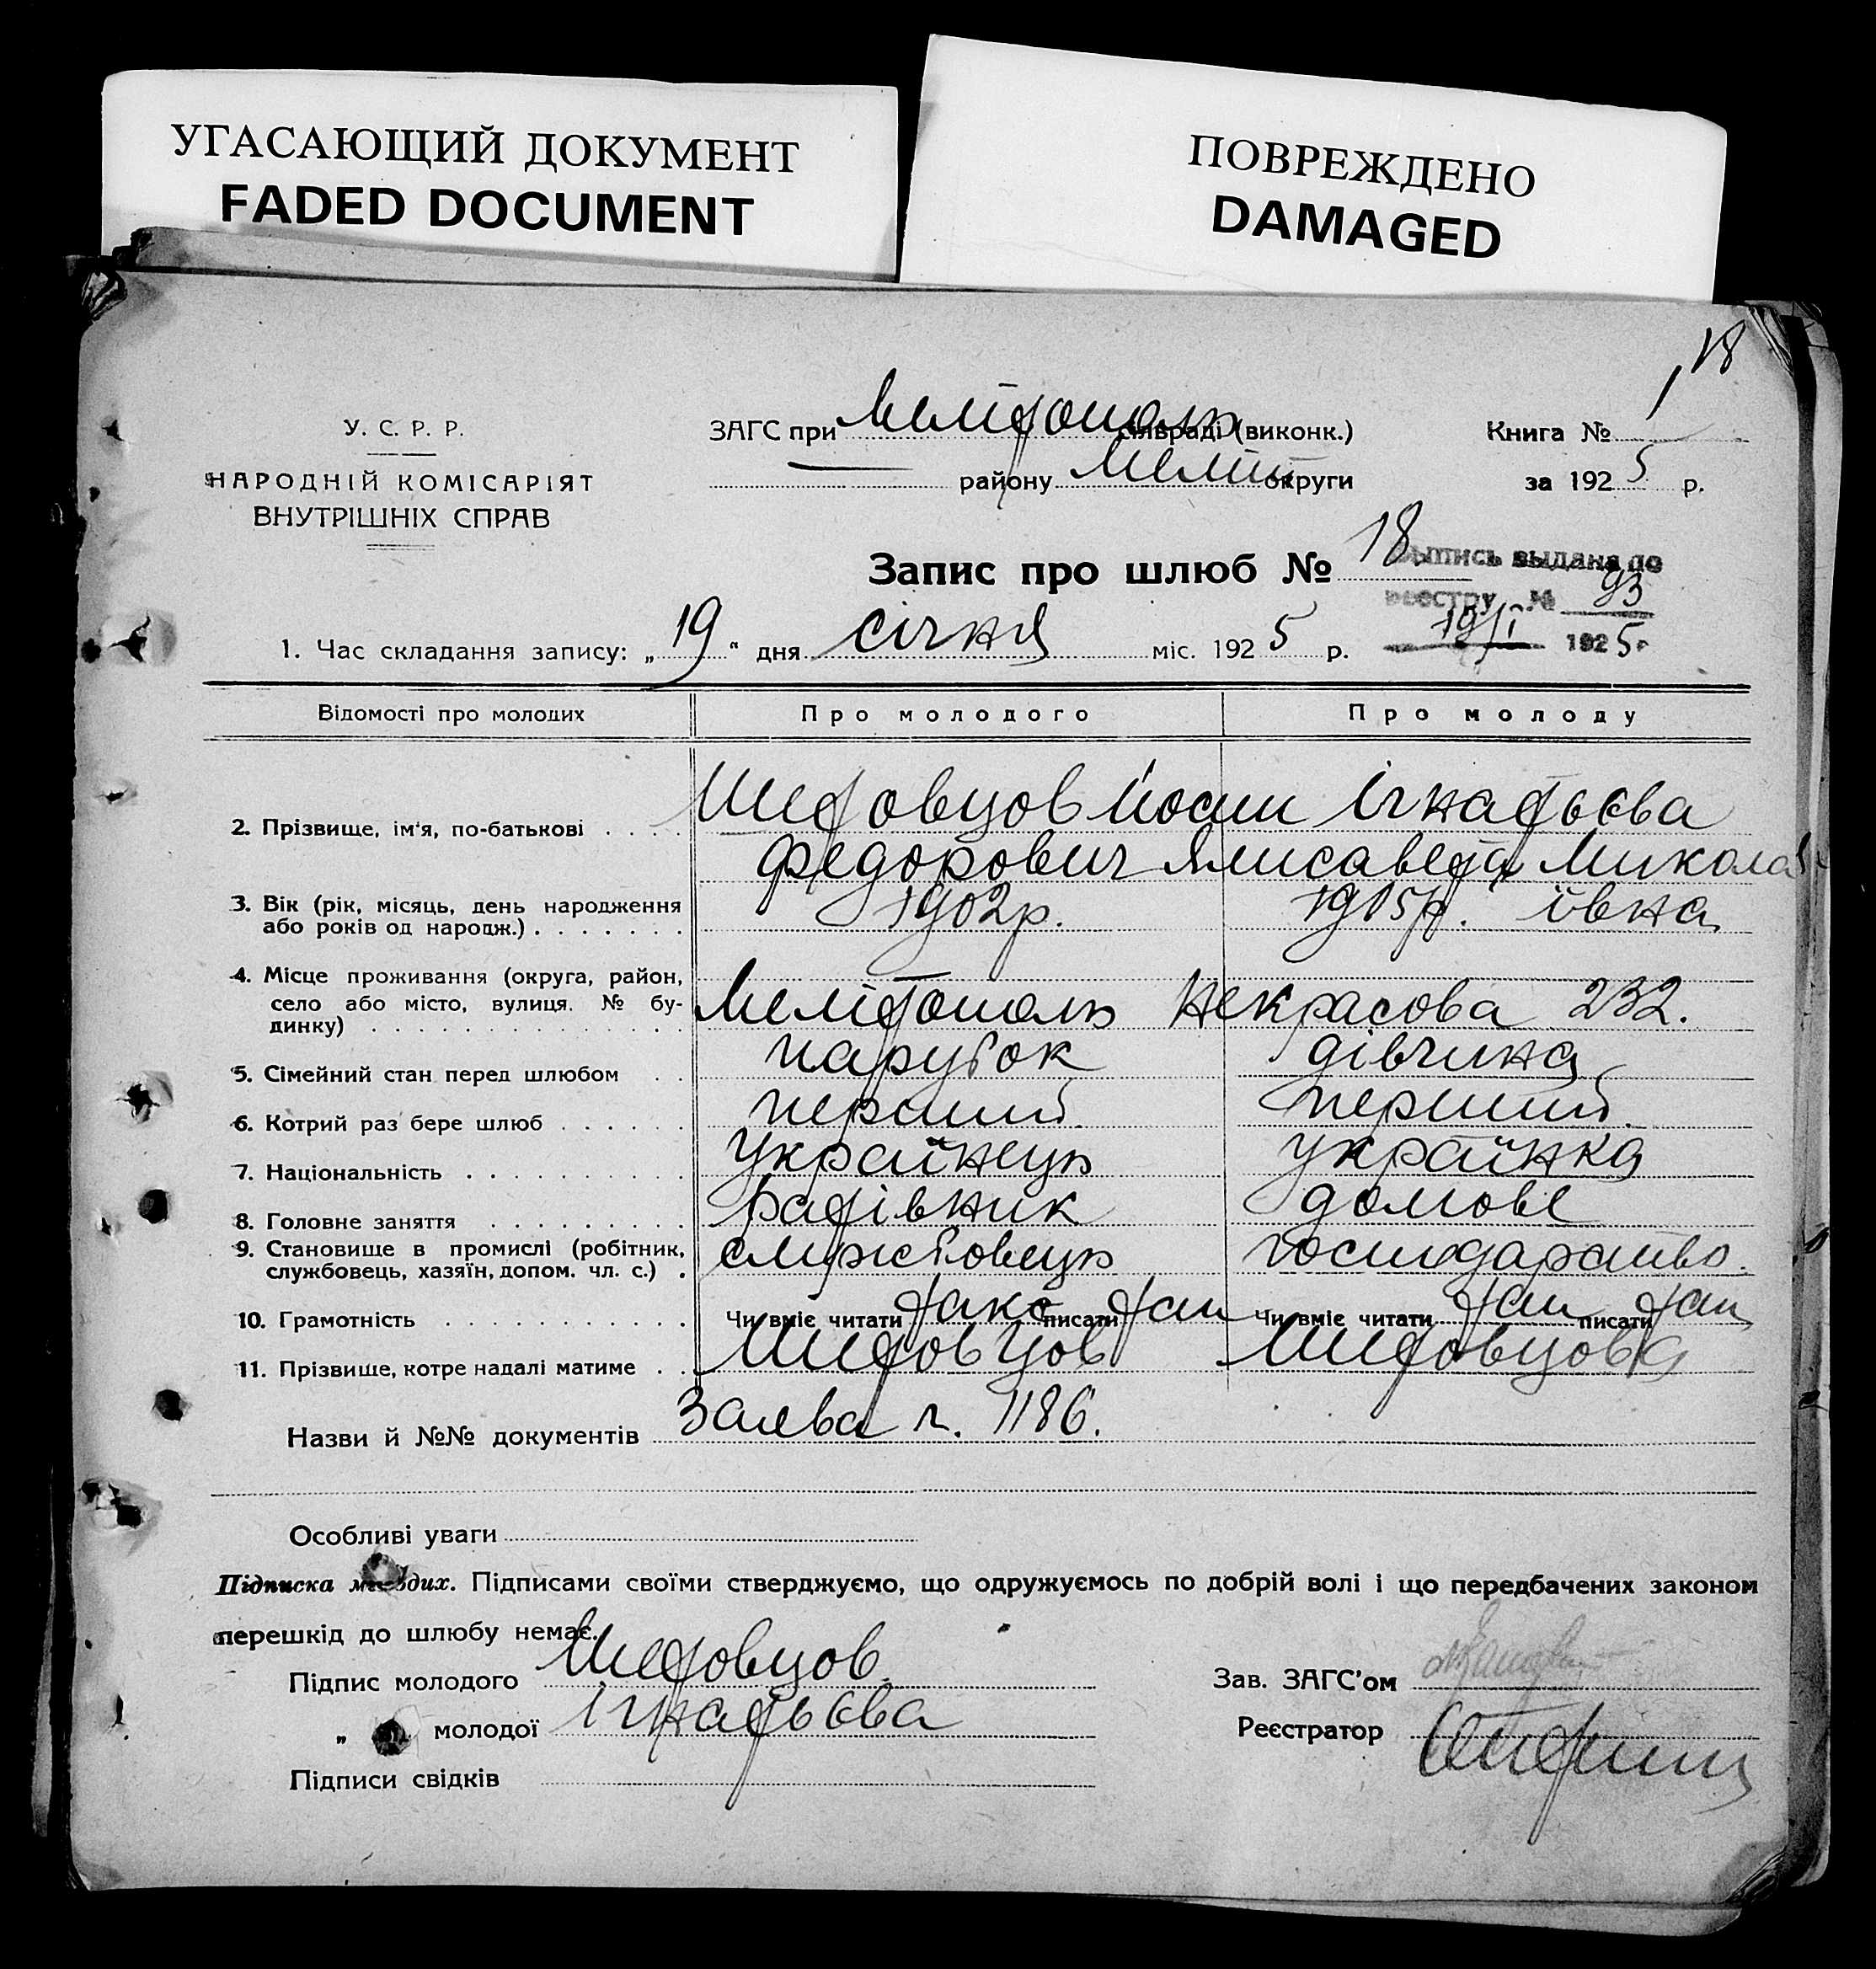 УГАСАЮЩИЙ ДОКУМЕНТ
FADED DOCUMENT
ПОВРЕЖДЕНО
DAMAGED
18
У. С. Р. Р.
НАРОДНІЙ КОМІСАРІЯТ
ВНУТРІШНІХ СПРАВ
ЗАГС при Мелітополь сільраді (виконк.)
району Меліт округи
Книга № 1
за 1925 р.
Запис про шлюб № 18
Выпись выдана по
реестру № 93
19/I 1925 г
1. Час складання запису: „19“ дня січня міс. 1925 р.
Відомості про молодих Про молодого Про молоду
2. Прізвище, ім'я, по-батькові . . . . Шетовцов Йосип Ігнатьєва
Федорович Єлисавета Микола
3. Вік (рік, місяць, день народження 1902р. 1905р. ївна
або років од народж.) . . . . . . .
4. Місце проживання (округа, район,
село або місто, вулиця. № бу-
динку) . . . . . . . . . . . . . . Мелітополь Некрасова 232.
5. Сімейний стан перед шлюбом . . парубок дівчина
6. Котрий раз бере шлюб . . . . . . перший перший
7. Національність . . . . . . . . . . українець українка
8. Головне заняття . . . . . . . . . домове
9. Становище в промислі (робітник,
службовець, хазяїн, допом. чл. с.) . службовець господарство.
10. Грамотність . . . . . . . . . . . Чи вміє читати так писати так Чи вміє читати так писати так
11. Прізвище, котре надалі матиме . . Шетовцов Шетовцова
Назви й №№ документів Заява ч. 1186.
Особливі уваги
Підписка молодих. Підписами своїми стверджуємо, що одружуємось по добрій волі і що передбачених законом
перешкід до шлюбу немає.
Підпис молодого Шетовцов
„ молодої Ігнатьєва
Підписи свідків
Зав. ЗАГС'ом
Реєстратор